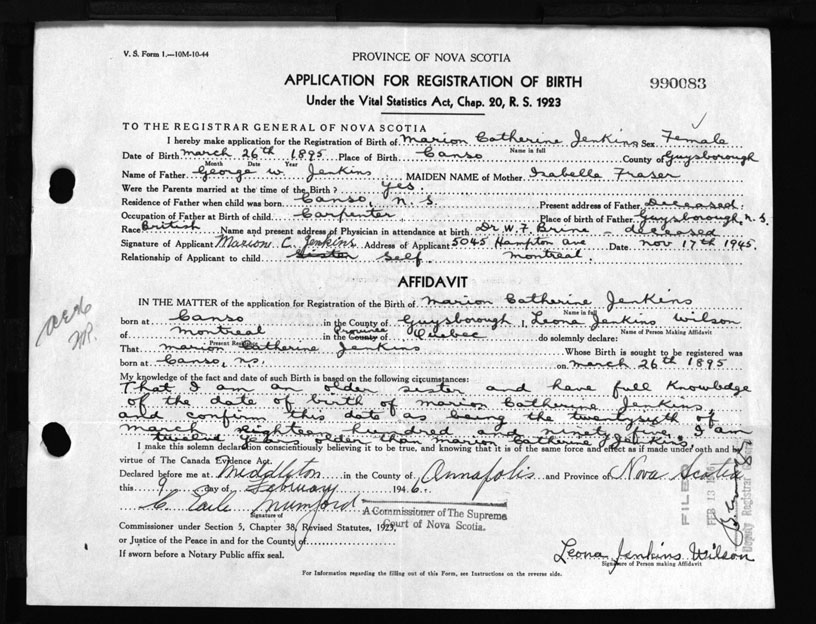 V. S. Form 1.—10M-10-44
PROVINCE OF NOVA SCOTIA
APPLICATION FOR REGISTRATION OF BIRTH
990083
Under the Vital Statistics Act, Chap. 20, R. S. 1923
TO THE REGISTRAR GENERAL OF NOVA SCOTIA
I hereby make application for the Registration of Birth of Marion Catherine Jenkins Sex Female
Name in full
Date of Birth March 26th 1895 Place of Birth Canso County of Guysborough
Month Date Year
Name of Father George W. Jenkins MAIDEN NAME of Mother Isabella Fraser
Were the Parents married at the time of the Birth? yes.
Residence of Father when child was born Canso, N. S. Present address of Father Deceased.
Occupation of Father at Birth of child Carpenter Place of birth of Father Guysborough, N. S.
Race British Name and present address of Physician in attendance at birth Dr W. F. Brine - deceased
Signature of Applicant Marion C. Jenkins Address of Applicant 5045 Hampton Ave Date Nov 17th 1945.
Relationship of Applicant to child Sister Self. Montreal.
AFFIDAVIT
IN THE MATTER of the application for Registration of the Birth of Marion Catherine Jenkins
Name in full
born at Canso in the County of Guysborough I, Leona Jenkins Wilson
Name of Person Making Affidavit
of Montreal in the County Province of Quebec do solemnly declare:
Present Residence
That Marion Catherine Jenkins Whose Birth is sought to be registered was
born at Canso, N.S. on March 26th 1895
My knowledge of the fact and date of such Birth is based on the following circumstances:
That I am an older sister and have full knowledge
of the date of birth of Marion Catherine Jenkins,
and confirm this date as being the twentysixth of
March eighteen hundred and ninety five. I am
twelve years older than Marion Catherine Jenkins
I make this solemn declaration conscientiously believing it to be true, and knowing that it is of the same force and effect as if made under oath and by
virtue of The Canada Evidence Act.
Declared before me at Middleton in the County of Annapolis and Province of Nova Scotia
this 9 day of February 1946.
C. Earle Mumford
Signature of
A Commissioner of The Supreme
Court of Nova Scotia.
Commissioner under Section 5, Chapter 38, Revised Statutes, 1923,
or Justice of the Peace in and for the County of
If sworn before a Notary Public affix seal.
Leona Jenkins Wilson
Signature of Person making Affidavit
For Information regarding the filling out of this Form, see Instructions on the reverse side.
FILED
FEB 13
Deputy Registrar